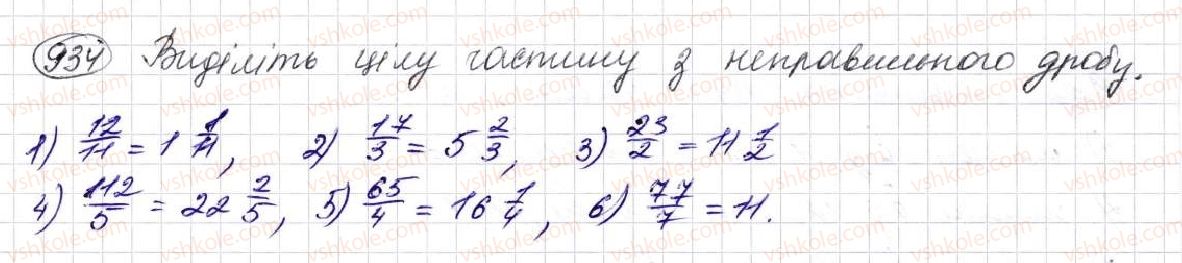 934 Виділіть цілу частину з неправильного дробу.
1) 12/11 = 1 1/11, 2) 17/3 = 5 2/3, 3) 23/2 = 11 1/2
4) 112/5 = 22 2/5, 5) 65/4 = 16 1/4, 6) 77/7 = 11.
vshkole.com